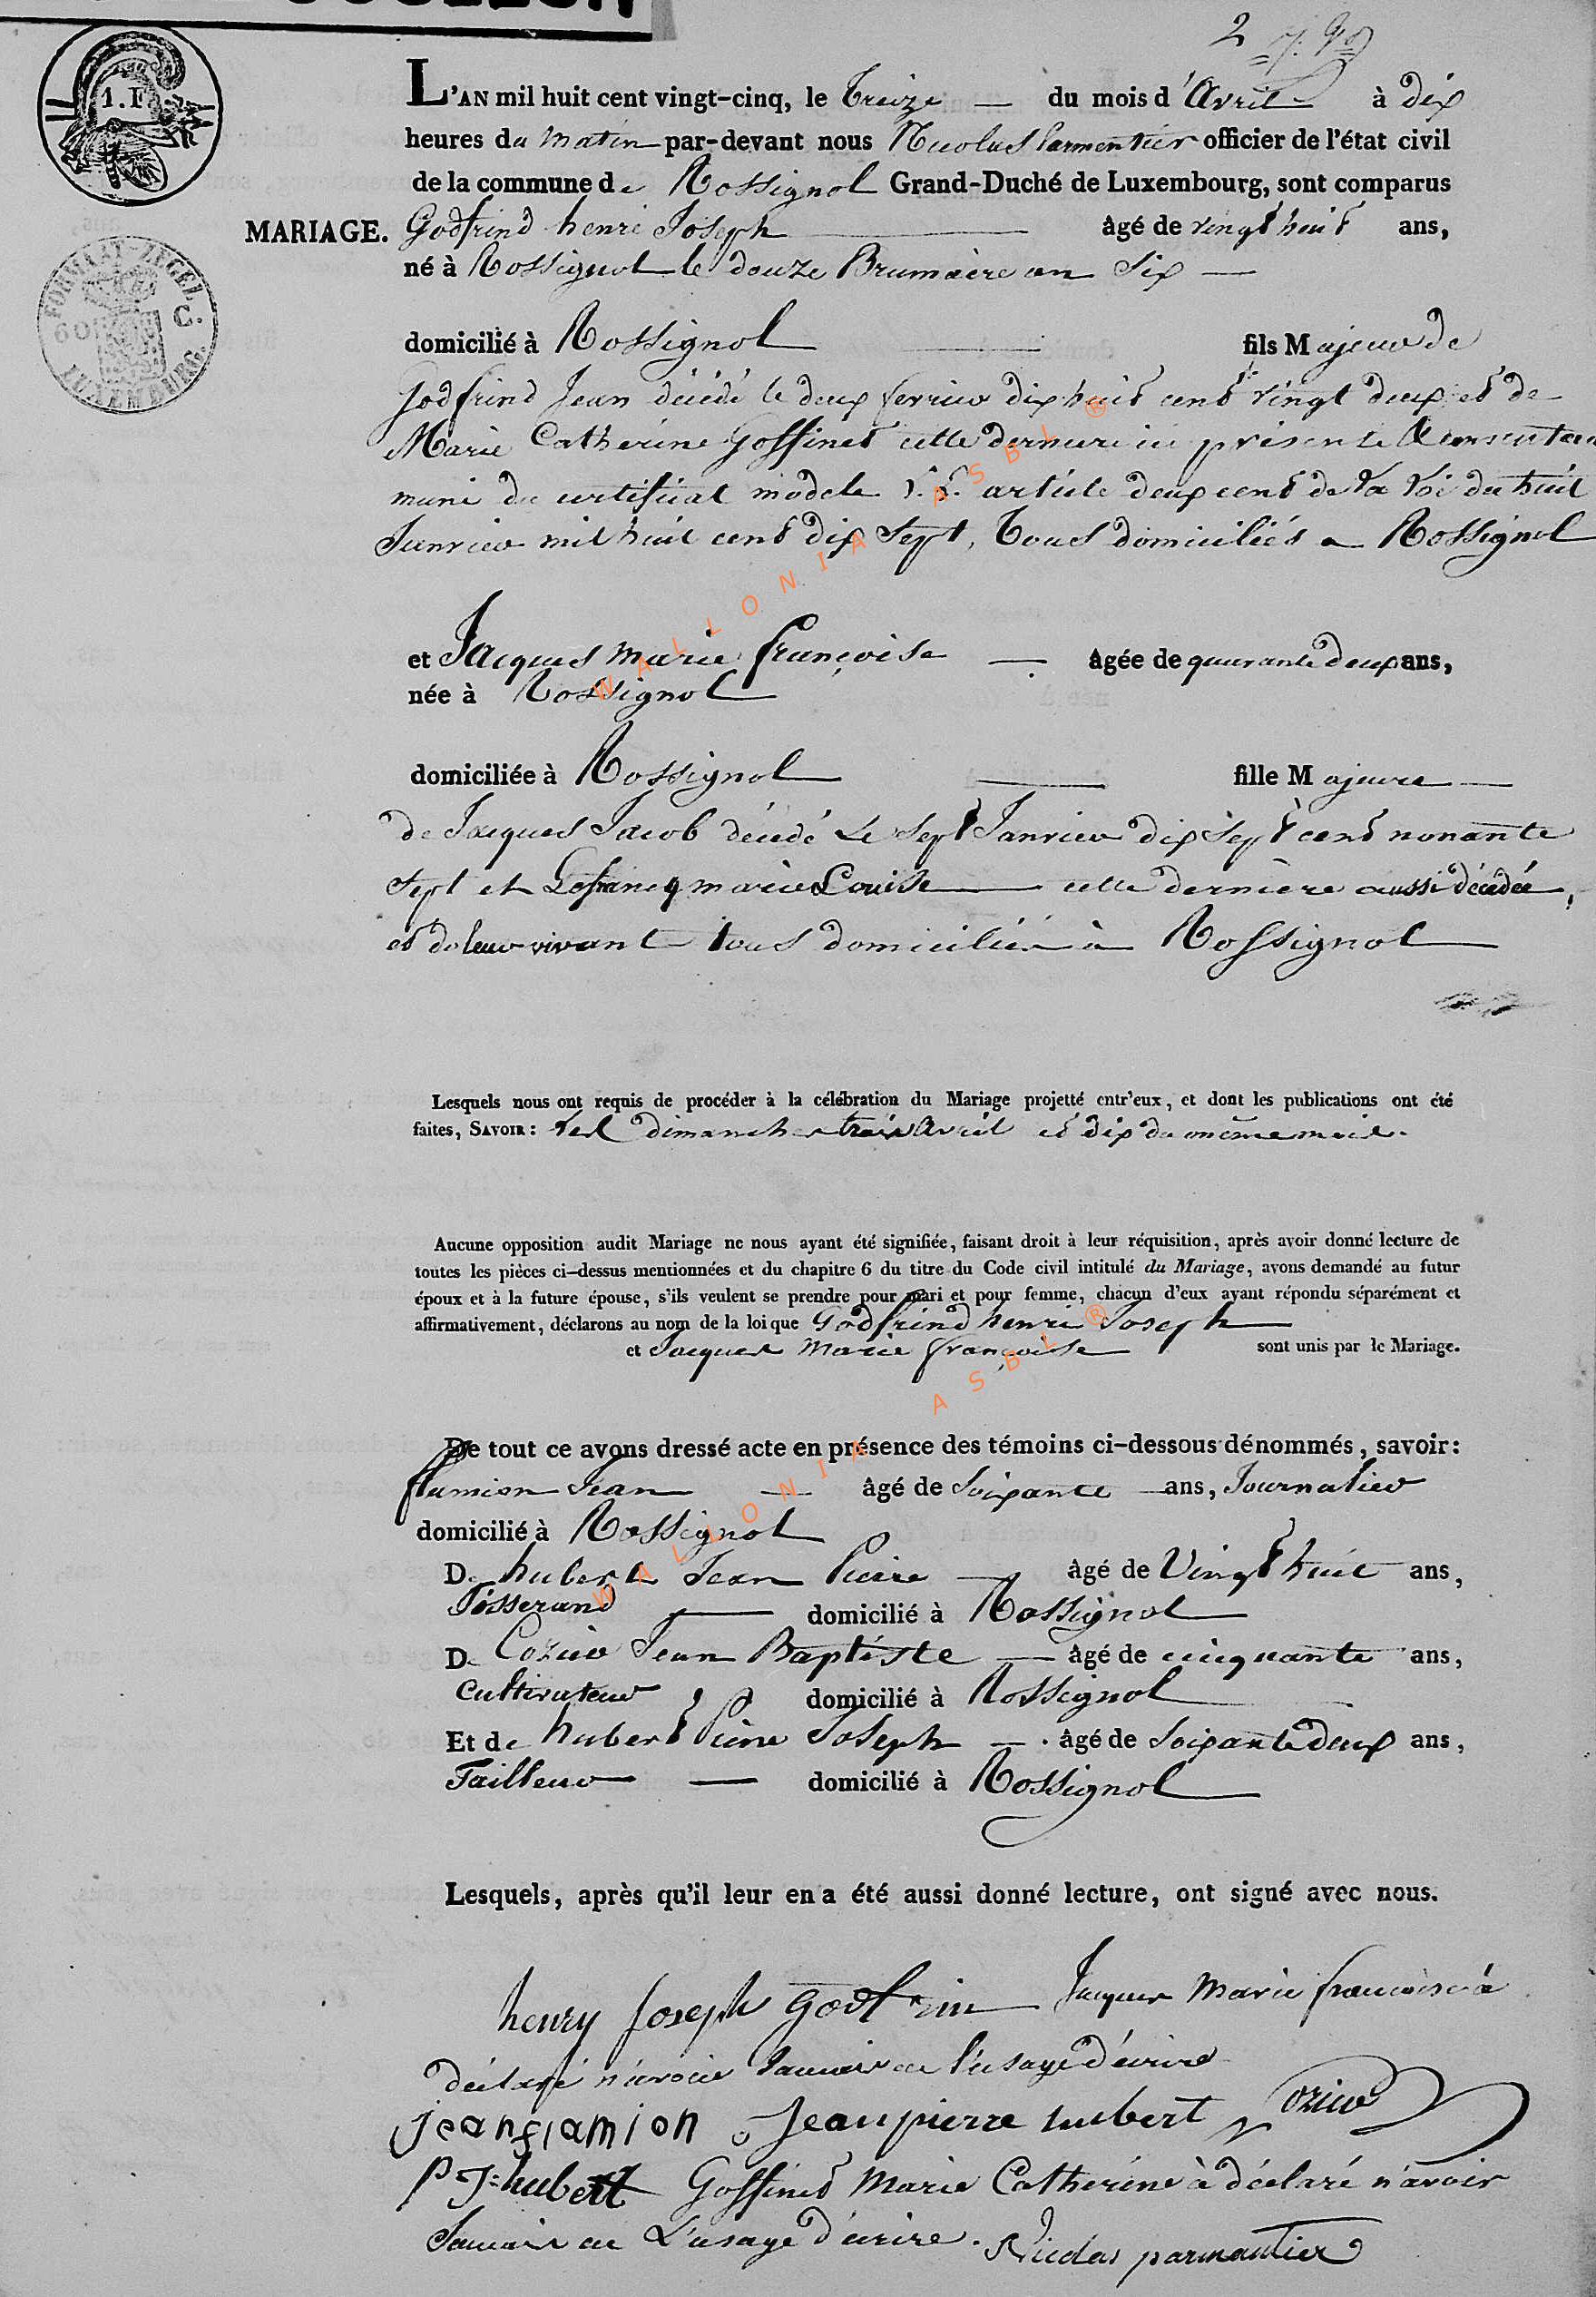 2
1. F
L'AN mil huit cent vingt-cinq, le Treize — du mois d'Avril à dix
heures du Matin par-devant nous Nicolas Parmentier officier de l'état civil
de la commune de Rossignol Grand-Duché de Luxembourg, sont comparus
MARIAGE. Godfrind henri Joseph — âgé de vingt huit ans,
né à Rossignol le douze Brumaire an Six —
FORMAAT-ZEGEL
60 C.
LUXEMBURG.
domicilié à Rossignol — fils Majeur de
Godfrind Jean décédé le deux fevrier dix huit cent vingt deux et de
Marie Catherine Goffinet cette derniere ici présente & consentan
muni du certificat modele article deux cent de la loi du huit
Janvier mil huit cent dix Sept, Tous domiciliés a Rossignol
et Jacques Marie françoise — âgée de quarante deux ans,
née à Rossignol
domiciliée à Rossignol — fille Majeure —
de Jacques Jacob décédé Le Sept Janvier dix Sept cent nonante
Sept et Lefrancq marie Louise — cette dernière aussi décédée,
et de leur vivant tous domiciliés à Rossignol
Lesquels nous ont requis de procéder à la célébration du Mariage projetté entr'eux, et dont les publications ont été
faites, SAVOIR : les dimanches trois Avril et dix du même mois.
Aucune opposition audit Mariage ne nous ayant été signifiée, faisant droit à leur réquisition, après avoir donné lecture de
toutes les pièces ci-dessus mentionnées et du chapitre 6 du titre du Code civil intitulé du Mariage, avons demandé au futur
époux et à la future épouse, s'ils veulent se prendre pour mari et pour femme, chacun d'eux ayant répondu séparément et
affirmativement, déclarons au nom de la loi que Godfrind henri Joseph
et Jacques Marie françoise sont unis par le Mariage.
De tout ce avons dressé acte en présence des témoins ci-dessous dénommés, savoir:
flamion Jean — âgé de Soixante ans, Journalier
domicilié à Rossignol
De hubert Jean Pierre — âgé de Vingt huit ans,
Tisserand — domicilié à Rossignol
De Cozier Jean Baptiste — âgé de cinquante ans,
Cultivateur domicilié à Rossignol
Et de hubert Pierre Joseph — âgé de Soixante deux ans,
Tailleur — domicilié à Rossignol
Lesquels, après qu'il leur en a été aussi donné lecture, ont signé avec nous.
henry Joseph godfrin Jacques Marie francoise à
déclaré n'avoir Jamais eu l'usage d'ecrire
jean flamion Jean pierre hubert Cozier
P J:hubert Goffinet Marie Catherine à déclaré n'avoir
Jamais eu L'usage d'ecrire. Nicolas parmantier
WALLONIA ASBL ®
WALLONIA ASBL ®